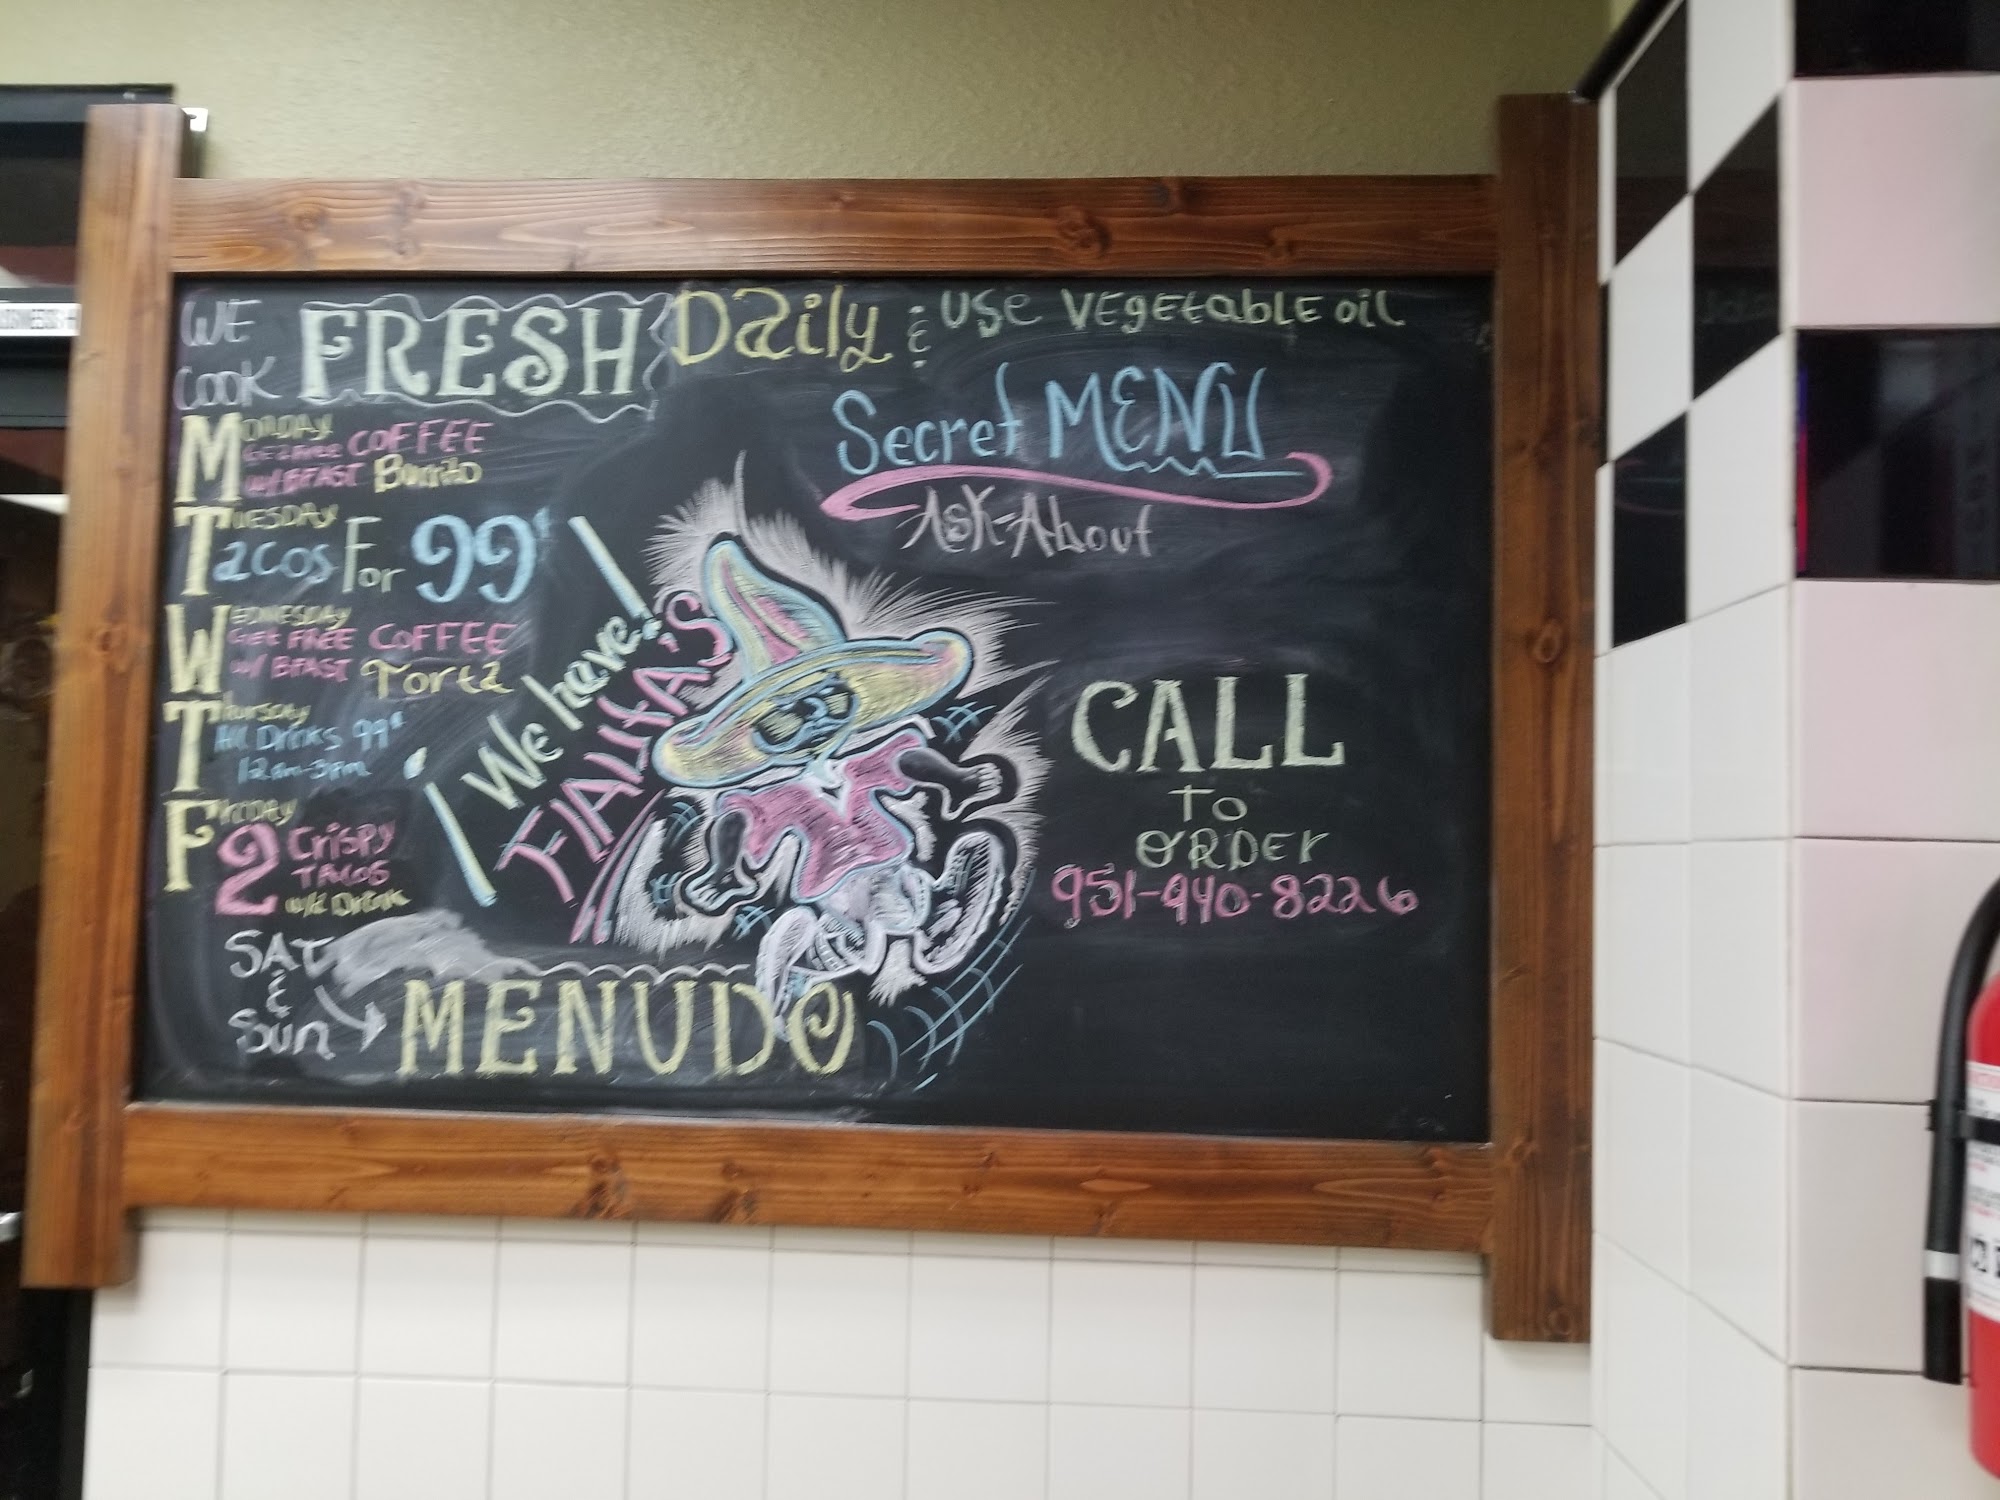 WE COOK FRESH Daily & USE VEgEtabLE OiL
MONDAY
GET FREE COFFEE
w/ BFAST Burrito
TUESDAY
Tacos For 99¢
WEDNESDAY
GET FREE COFFEE
w/ BFAST Torta
Thursday
All Drinks 99¢
12am-3pm
FRIDAY
2 Crispy
TACOS
w/ Drink
SAT
&
SUN
MENUDO
¡We have!
FIALITA'S
Secret MENU
Ask-About
CALL
TO
ORDER
951-940-8226